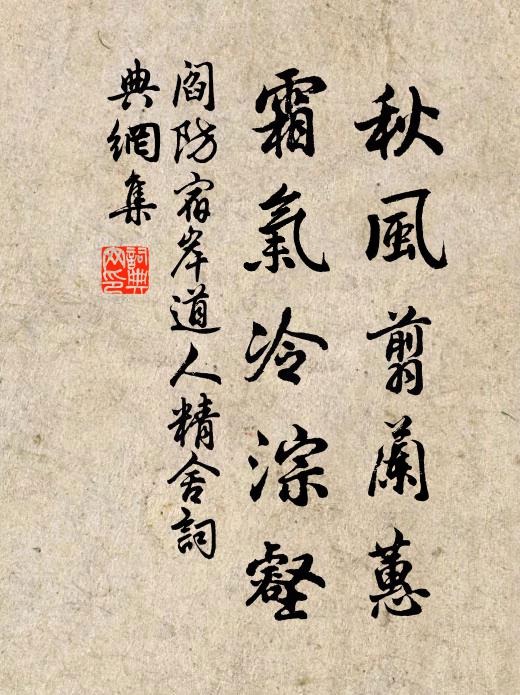 秋風翦蘭蕙
霜氣冷淙壑
閻防宿岸道人精舍詞
典網集
詞典
文印